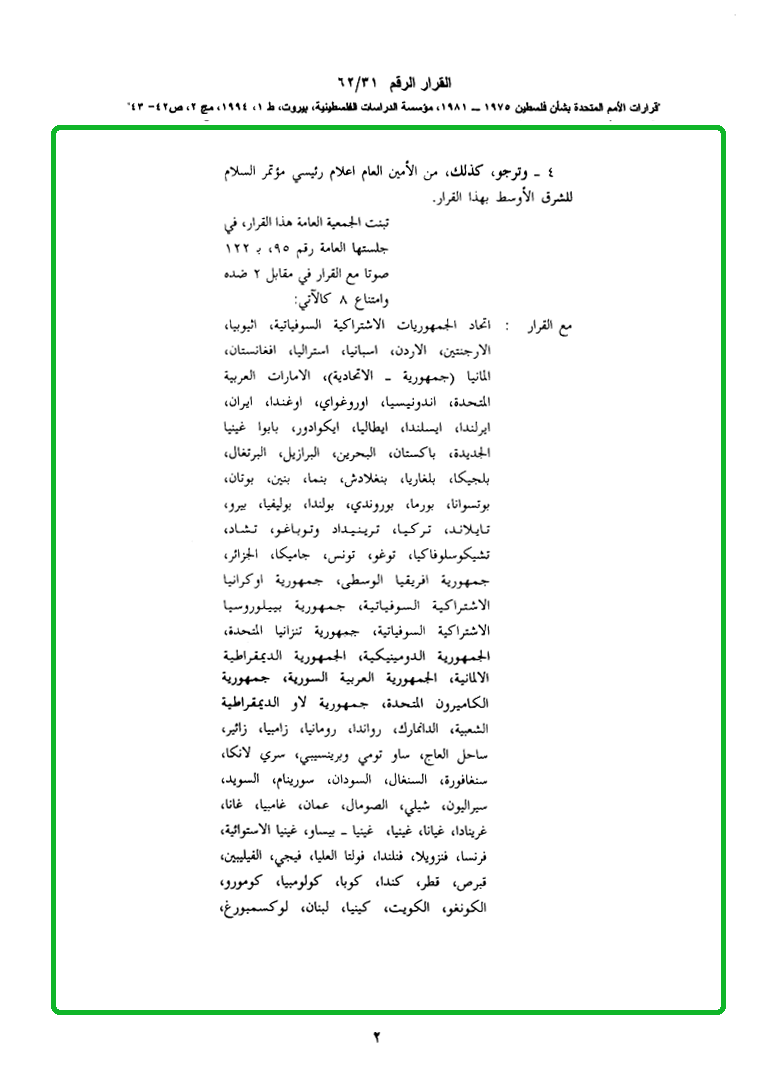 القرار الرقم ٦٢/٣١
"قرارات الأمم المتحدة بشأن فلسطين ١٩٧٥ ــ ١٩٨١، مؤسسة الدراسات الفلسطينية، بيروت، ط ١، ١٩٩٤، مج ٢، ص٤٢- ٤٣"
٤ ـ وترجو، كذلك، من الأمين العام اعلام رئيسي مؤتمر السلام
للشرق الأوسط بهذا القرار.
تبنت الجمعية العامة هذا القرار، في
جلستها العامة رقم ٩٥، بـ ١٢٢
صوتا مع القرار في مقابل ٢ ضده
وامتناع ٨ كالآتي:
مع القرار : اتحاد الجمهوريات الاشتراكية السوفياتية، اثيوبيا،
الارجنتين، الاردن، اسبانيا، استراليا، افغانستان،
المانيا (جمهورية ـ الاتحادية)، الامارات العربية
المتحدة، اندونيسيا، اوروغواي، اوغندا، ايران،
ايرلندا، ايسلندا، ايطاليا، ايكوادور، بابوا غينيا
الجديدة، باكستان، البحرين، البرازيل، البرتغال،
بلجيكا، بلغاريا، بنغلادش، بنما، بنين، بوتان،
بوتسوانا، بورما، بوروندي، بولندا، بوليفيا، بيرو،
تايلاند، تركيا، ترينيداد وتوباغو، تشاد،
تشيكوسلوفاكيا، توغو، تونس، جاميكا، الجزائر،
جمهورية افريقيا الوسطى، جمهورية اوكرانيا
الاشتراكية السوفياتية، جمهورية بييلوروسيا
الاشتراكية السوفياتية، جمهورية تنزانيا المتحدة،
الجمهورية الدومينيكية، الجمهورية الديمقراطية
الالمانية، الجمهورية العربية السورية، جمهورية
الكاميرون المتحدة، جمهورية لاو الديمقراطية
الشعبية، الدانمارك، رواندا، رومانيا، زامبيا، زائير،
ساحل العاج، ساو تومي وبرينسيبي، سري لانكا،
سنغافورة، السنغال، السودان، سورينام، السويد،
سيراليون، شيلي، الصومال، عمان، غامبيا، غانا،
غرينادا، غيانا، غينيا، غينيا ـ بيساو، غينيا الاستوائية،
فرنسا، فنزويلا، فنلندا، فولتا العليا، فيجي، الفيليبين،
قبرص، قطر، كندا، كوبا، كولومبيا، كومورو،
الكونغو، الكويت، كينيا، لبنان، لوكسمبورغ،
٢